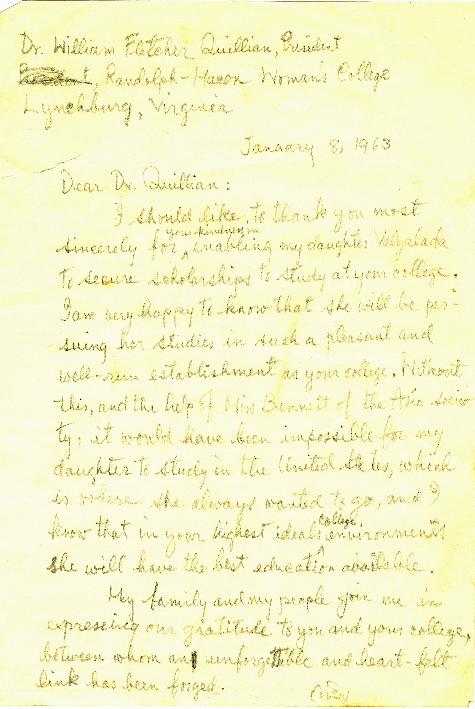 Dr. William Fletcher Quillian, President
President, Randolph-Macon Woman's College
Lynchburg, Virginia
January 8, 1963
Dear Dr. Quillian:
I should like, to thank you most
sincerely for your kindness in enabling my daughter
to secure scholarships to study at your college.
I am very happy to know that she will be per-
suing her studies in such a pleasant and
well-run establishment as your college. Without
this, and the help of Miss Bennett of the Asia socie-
ty; it would have been impossible for my
daughter to study in the United States, which
is where she always wanted to go, and I
know that in your highest ideals college environments
she will have the best education available.
My family and my people join me in
expressing our gratitude to you and your college,
between whom an unforgettable and heart-felt
link has been forged.